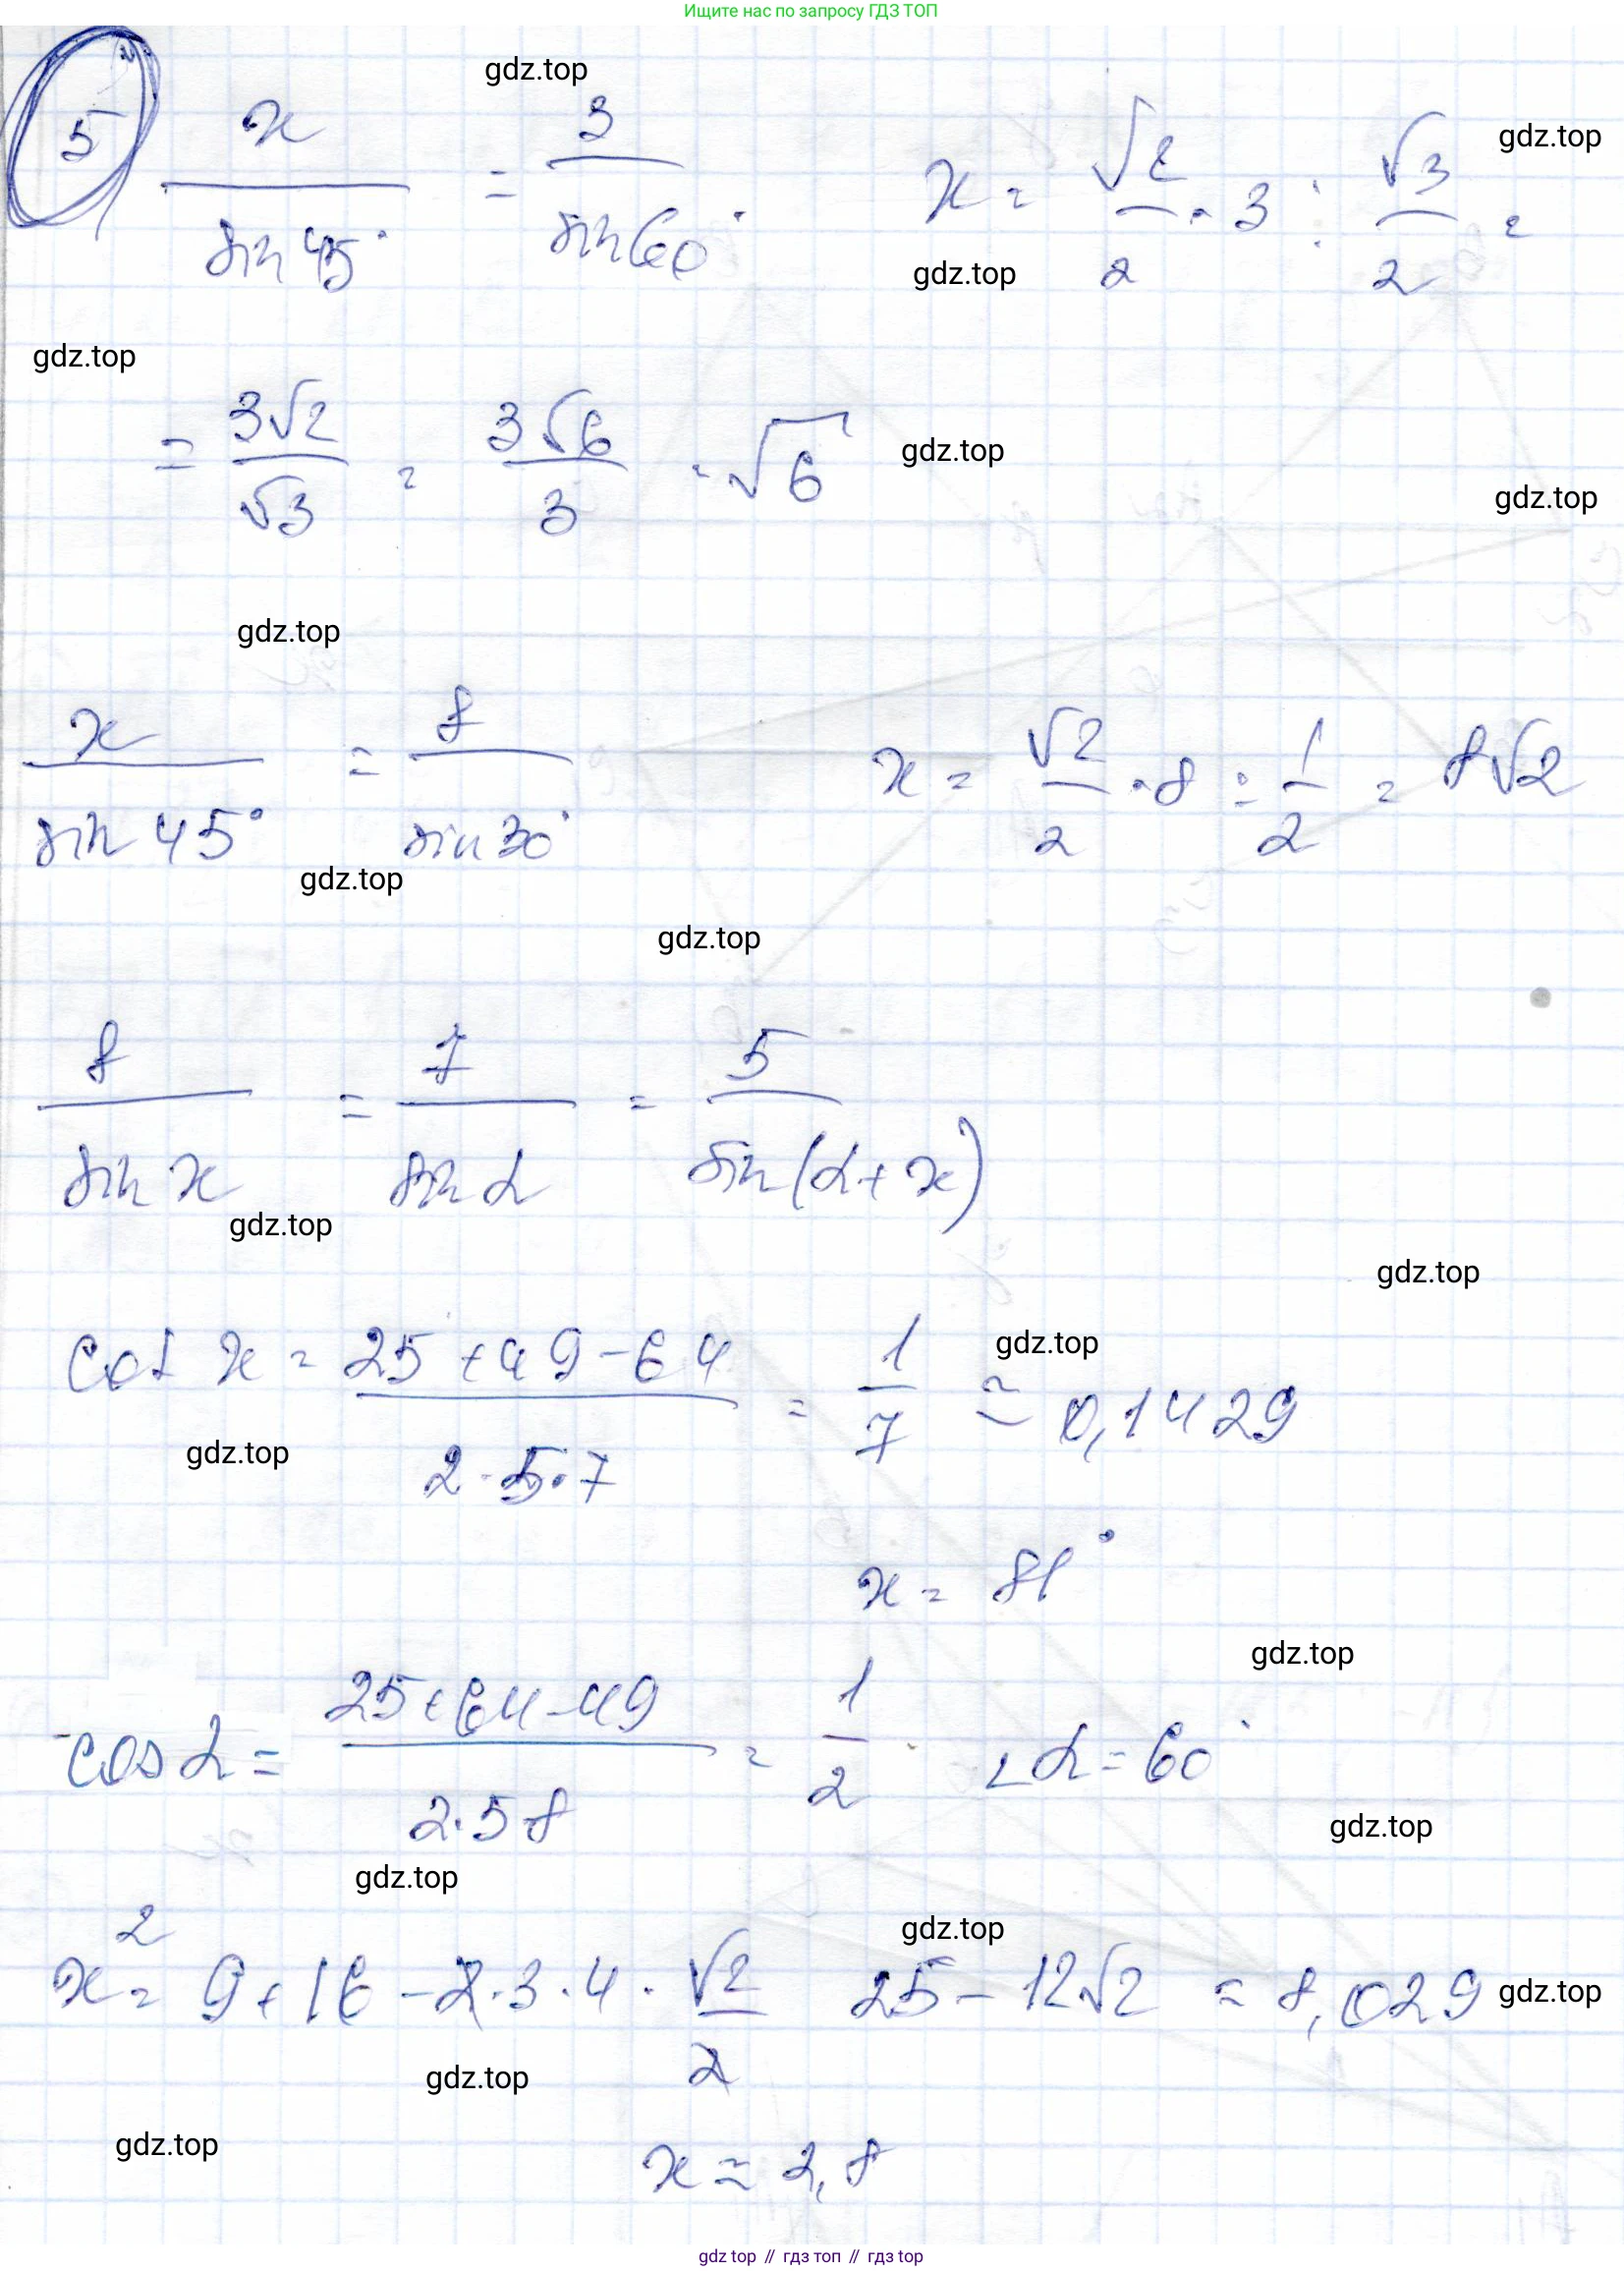 Ищите нас по запросу ГДЗ ТОП
gdz.top
5
x / sin 45° = 3 / sin 60°    x = √2/2 · 3 : √3/2 =
gdz.top
gdz.top
gdz.top
= 3√2/√3 = 3√6/3 = √6
gdz.top
gdz.top
gdz.top
x / sin 45° = 8 / sin 30°    x = √2/2 · 8 : 1/2 = 8√2
gdz.top
gdz.top
8 / sin x = 7 / sin α = 5 / sin(α + x)
gdz.top
gdz.top
cos x = (25 + 49 - 64) / (2 · 5 · 7) = 1/7 ≈ 0,1429
gdz.top
gdz.top
x = 81°
gdz.top
cos α = (25 + 64 - 49) / (2 · 5 8) = 1/2    ∠α = 60°
gdz.top
gdz.top
gdz.top
x² = 9 + 16 - 2 · 3 · 4 · √2/2    25 - 12√2 = 8,029
gdz.top
gdz.top
gdz.top
x ≈ 2,8
gdz top // гдз топ // гдз top